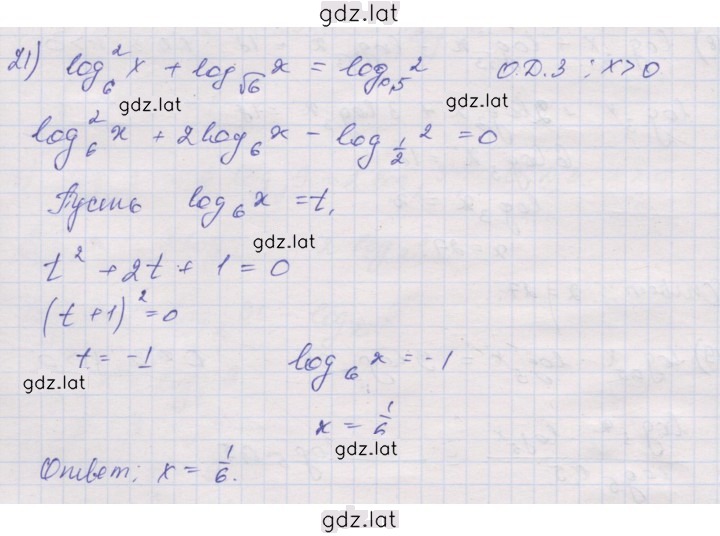 gdz.lat
21) log₆² x + log_√6 x = log_0,5 2 О.Д.З : x > 0
gdz.lat gdz.lat
log₆² x + 2 log₆ x - log_1/2 2 = 0
Пусть log₆ x = t,
gdz.lat
t² + 2t + 1 = 0
(t + 1)² = 0
t = -1 log₆ x = -1
gdz.lat
x = 1/6
gdz.lat
Ответ: x = 1/6.
gdz.lat